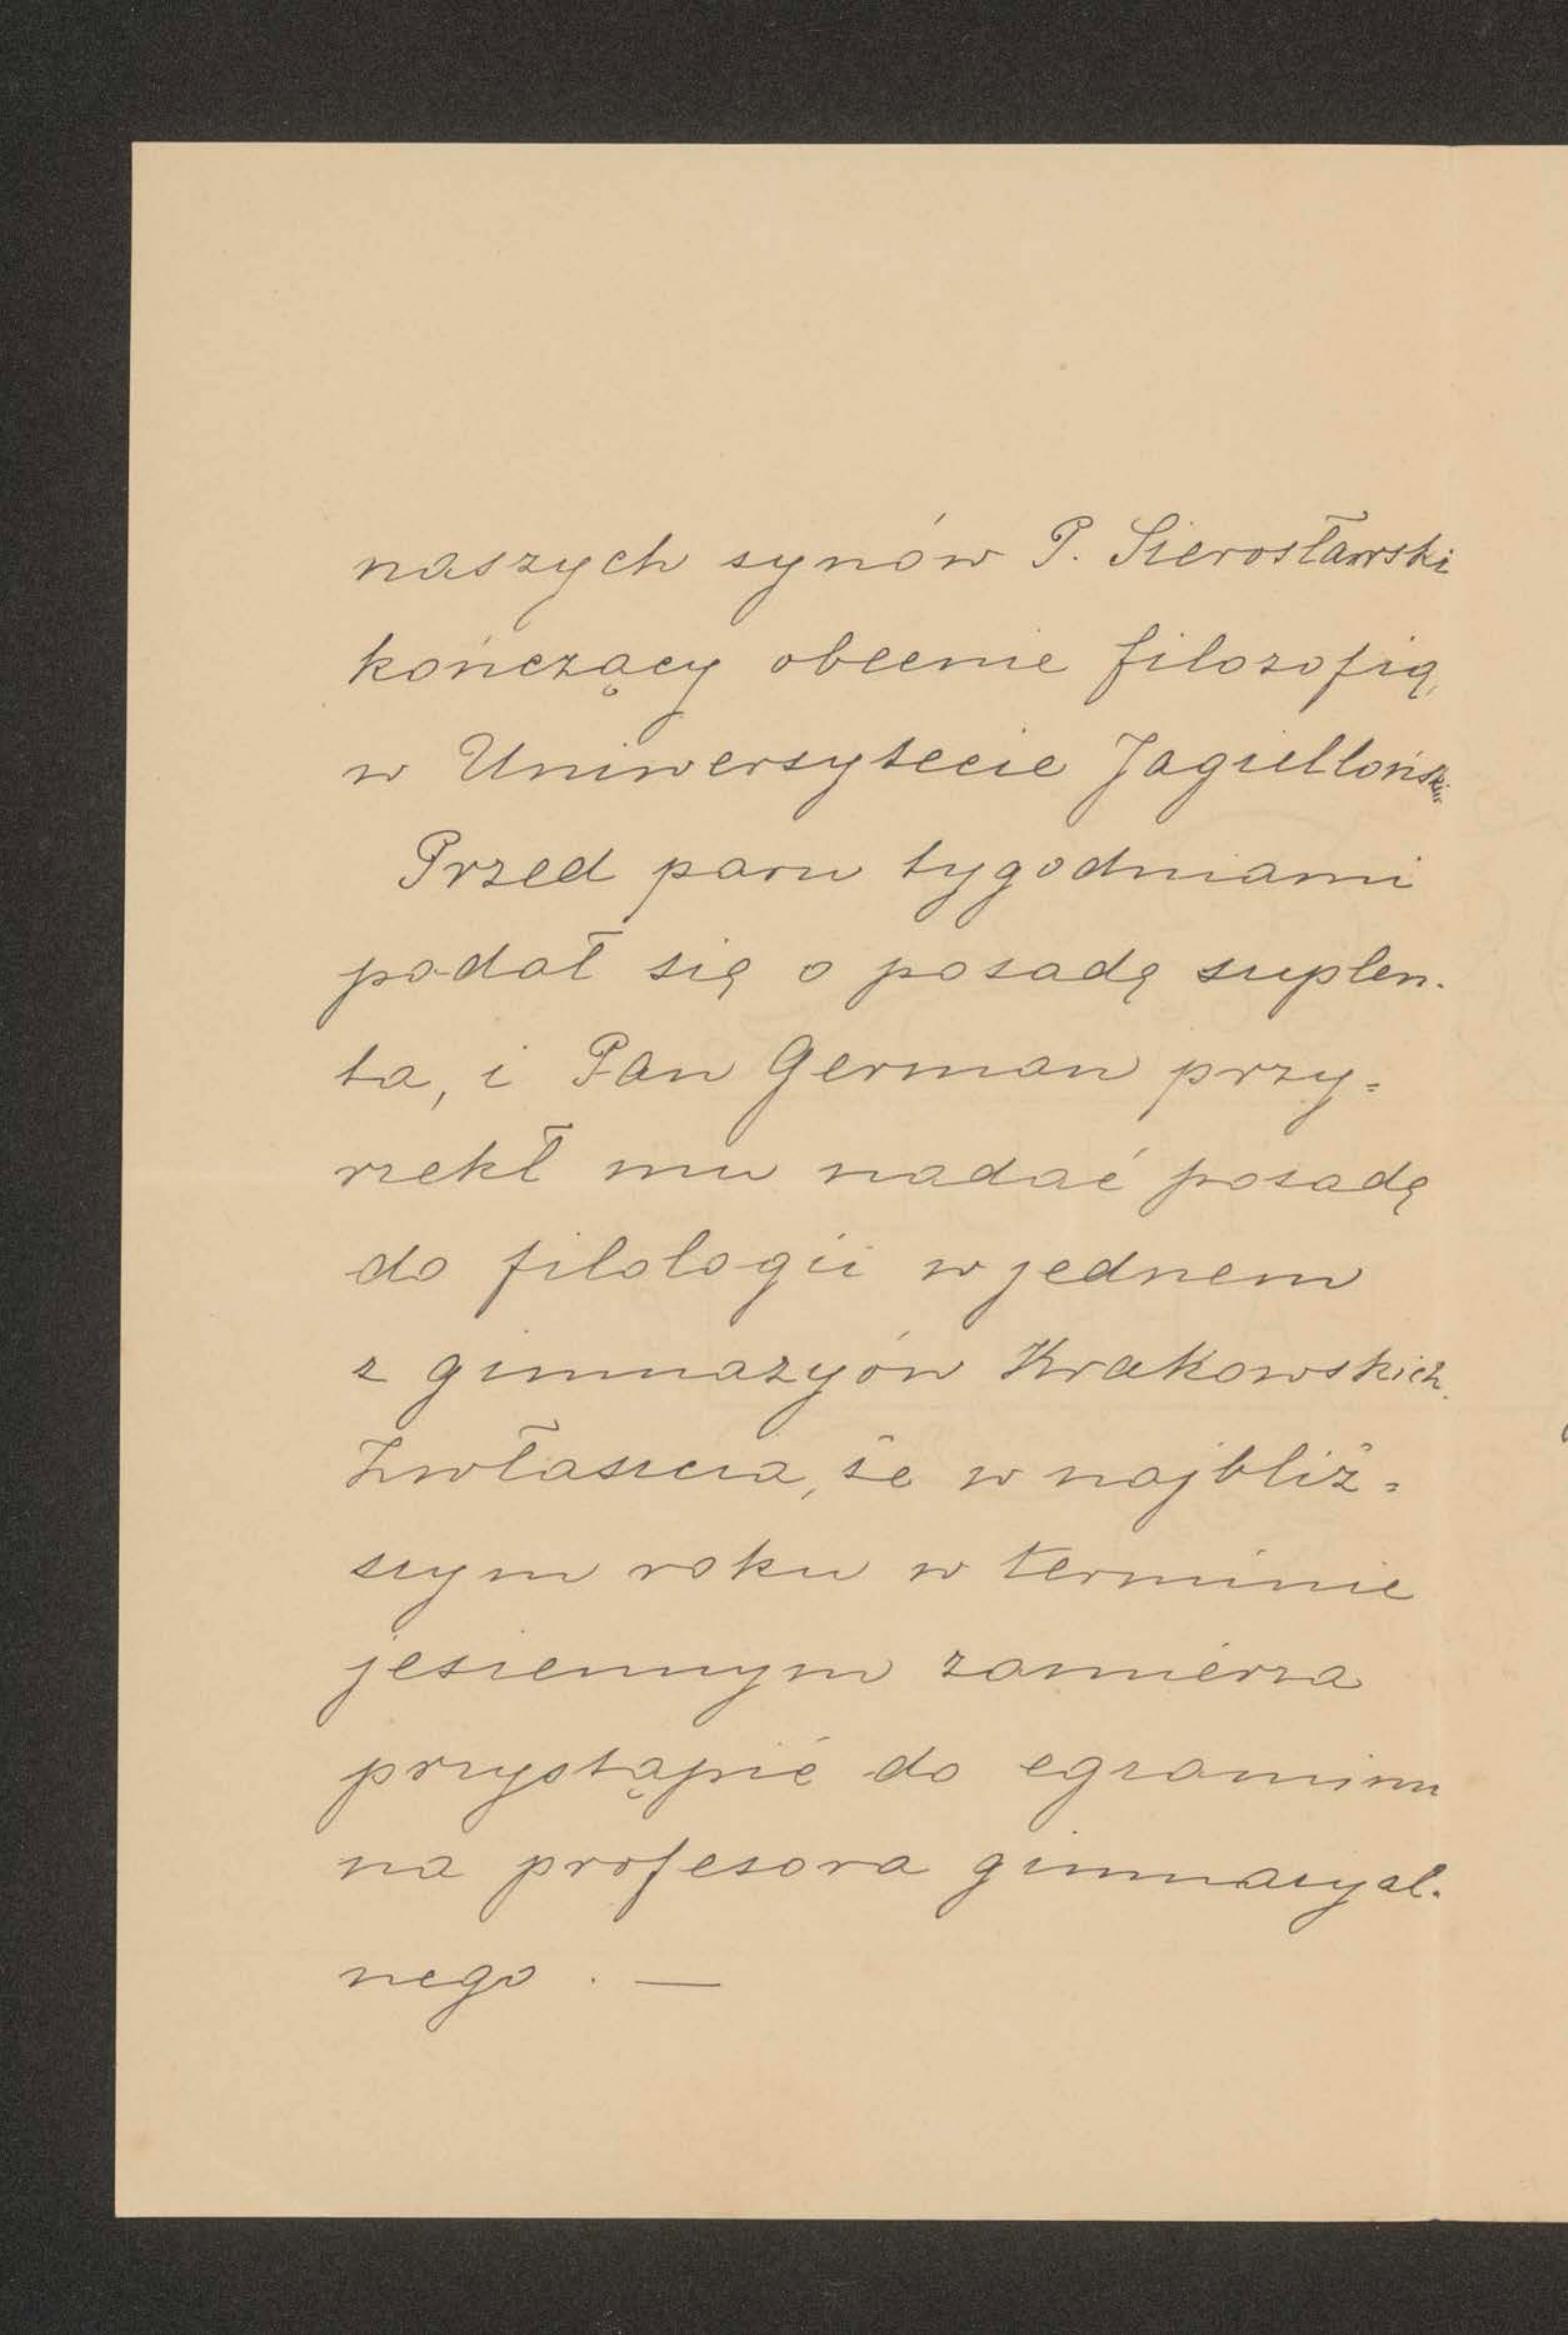 naszych synów P. Sierosławski
kończący obecnie filozofią,
w Uniwersytecie Jagiellońskim
Przed paru tygodniami
podał się o posadę suplen-
ta, i Pan German przy=
rzekł mu nadać posadę
do filologii w jednem
z gimnazyów Krakowskich.
Zwłaszcza, że w najbliż=
szym roku w terminie
jesiennym zamiérza
przystąpić do egzaminu
na profesora gimnazyal-
nego. —